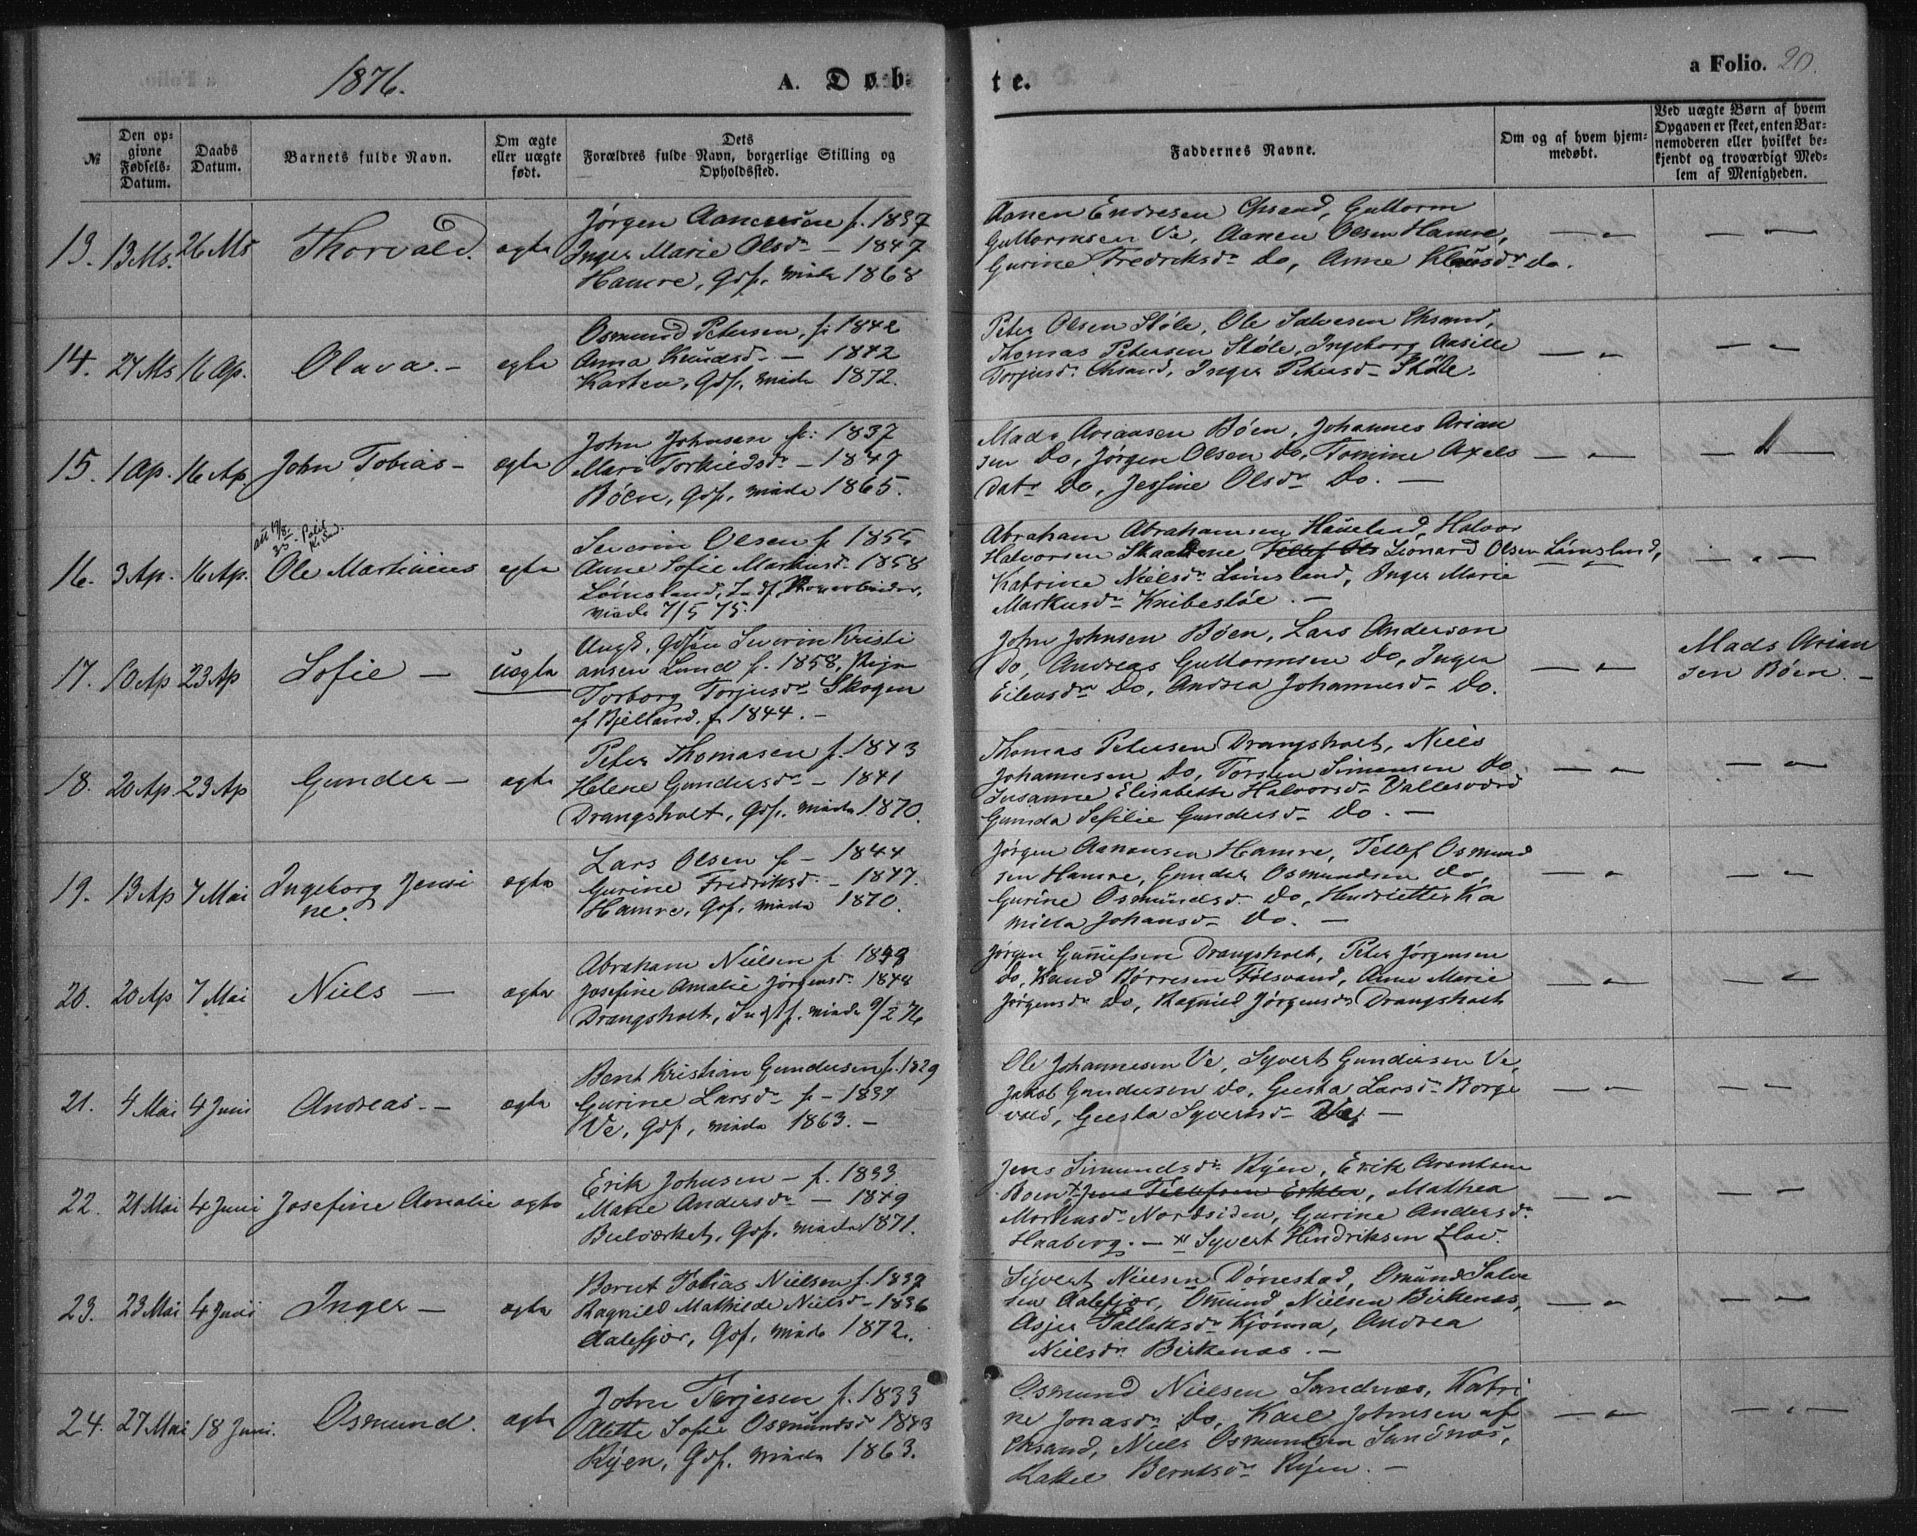 1876.
A. Døb-
te.
a Folio. 20.
№
Den op-
givne
Fødsels-
Datum.
Daabs
Datum.
Barnets fulde Navn.
Om ægte
eller uægte
født.
Dets
Forældres fulde Navn, borgerlige Stilling og
Opholdssted.
Faddernes Navne.
Om og af hvem hjem-
medøbt.
Ved uægte Børn af hvem
Opgaven er skeet, enten Bar-
nemoderen eller hvilket be-
kjendt og troværdigt Med-
lem af Menigheden.
13. 13 Ms. 26 Ms Thorvald. ægte
Jørgen Aanensen f. 1837
Inger Marie Olsdr - 1847
Hamre, Gdf. viede 1868
Aanen Endresen Chrsand, Guttorm
Guttormsen Ve, Aanen Olsen Hamre,
Gurine Fredriksdr Do, Anne Klausdr Do.
14. 27 Ms 16 Ap. Olava. - ægte
Osmund Petersen, f. 1842
Anna Knudsd. - 1842
Karten, Gdf. viede 1872.
Peter Olsen Støle, Ole Salvesen Chrsand,
Thomas Petersen Støle, Ingeborg Aasille
Torjusd. Chrsand, Inger Petersd - Støle.
15. 1 Ap. 16 Ap. John Tobias - ægte
John Johnsen f. 1837
Mari Torkieldsdr - 1847
Bøen, Gdf, viede 1865.
Mads Ariansen Bøen, Johannes Arian
sen Do, Jørgen Olsen Do, Tomine Axels
datr Do, Jessine Olsdr Do. -
16. 3 Ap. 16 Ap. Ole Martinius ægte
Severin Olsen f 1855
Anne Sofie Markusd. 1858
Lømsland, Indf.
viede 7/5 75.
Abraham Abrahamsen Haueland, Halvor
Halvorsen Skaadene Tellef Ols Leonard Olsen Lømsland,
Katrine Nielsdr Lømsland, Inger Marie
Markusdr Knibesløe. -
17. 10 Ap 23 Ap Sofie - uægte
Ungk. Gdsøn Severin Kristi
ansen Lund f. 1858, Pige
Torborg Torjusdr Skogen
af Bjelland. f 1844. -
John Johnsen Bøen, Lars Andersen
Do, Andreas Guttormsen Do, Inger
Eilevsdr Do, Andrea Johannesd - Do.
Mads Arian
sen Bøen. -
18. 20 Ap 23 Ap Gunder - ægte
Peter Thomasen f. 1843
Helene Gundersdr - 1841
Drangsholt, Gdf. viede 1870.
Thomas Petersen Drangsholt, Niels
Johannesen Do, Torsten Simonsen Do
Susanne Elisabeth Halvorsd - Vallesverd
Gunda Sesilie Gundersd - Do. -
19. 13 Ap 7 Mai Ingeborg Jensi
ne. ægte
Lars Olsen f - 1844
Gurine Fredriksd. - 1847.
Hamre, Gdf, viede 1870.
Jørgen Aanensen Hamre, Tellef Osmund
sen Hamre, Gunder Osmundsen Do,
Gurine Osmundsd. Do, Henriette Ka
milla Johansd - Do. -
20. 20 Ap 7 Mai Niels - ægte
Abraham Nielsen f 1843
Josefine Amalie Jørgensd. 1848
Drangsholt, Indf. viede 9/2 76
Jørgen Gunnufsen Drangsholt, Peter Jørgensen
Do, Knud Børresen Følsvand, Anne Marie
Jørgensdr Do, Ragnild Jørgensdr Drangsholt
21. 4 Mai 4 Juni Andreas. - ægte
Bent Kristian Gundersen f. 1829
Gurine Larsdr f - 1837
Ve, Gdf, viede 1863. -
Ole Johannesen Ve, Syvert Gundersen Ve,
Jakob Gundersen Do, Geesta Larsdr Borge
vold, Geesta Syvertsd - Ve, -
22. 21 Mai 4 Juni Josefine Amalie ægte
Erik Johnsen - f. 1833
Marie Andersdr - 1849
Beelværket, Gdf. viede 1871.
Jens Simundsdr Ryen, Erik Arentsen
Boen x Jens Tellefsen Erklev, Mathea
Mortensdr Nordsiden, Gurine Andersdr
Haaberg. - x Syvert Hendriksen Flav.
23. 23 Mai 4 Juni Inger - ægte
Bernt Tobias Nielsen f. 1837
Ragnild Mathilde Nielsd - 1836
Aalefjær, Gdf. viede 1872.
Syvert Nielsen Dønestad, Omund Salve
sen Aalefjær, Omund Nielsen Birkenæs,
Asjer Tallaksdr Kjonna, Andrea
Nielsdr Birkenæs. -
24. 27 Mai 18 Juni. Osmund. ægte
John Terjesen f. 1833
Alette Sofie Osmundsd 1843
Ryen, Gdf. viede 1863.
Osmund Nielsen Sandnæs, Katri
ne Jonasdr Do, Karl Johnsen af
Chrsand, Niels Osmundsen Sandnæs,
Rakel Berntsdr Ryen. -